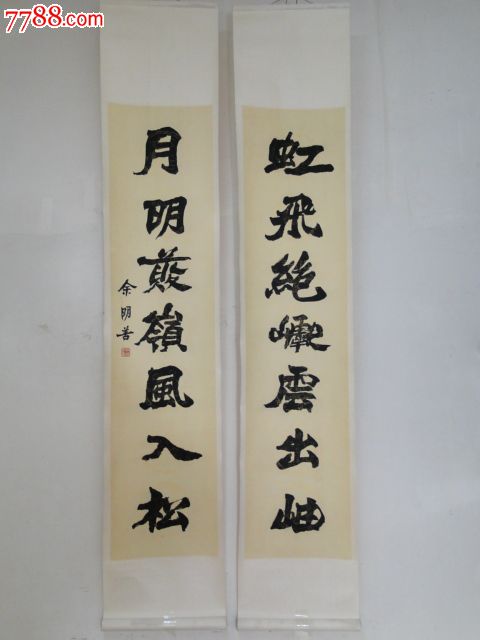 7788.com
虹飛絕巘雲出岫
月明嶺風入松
余明善